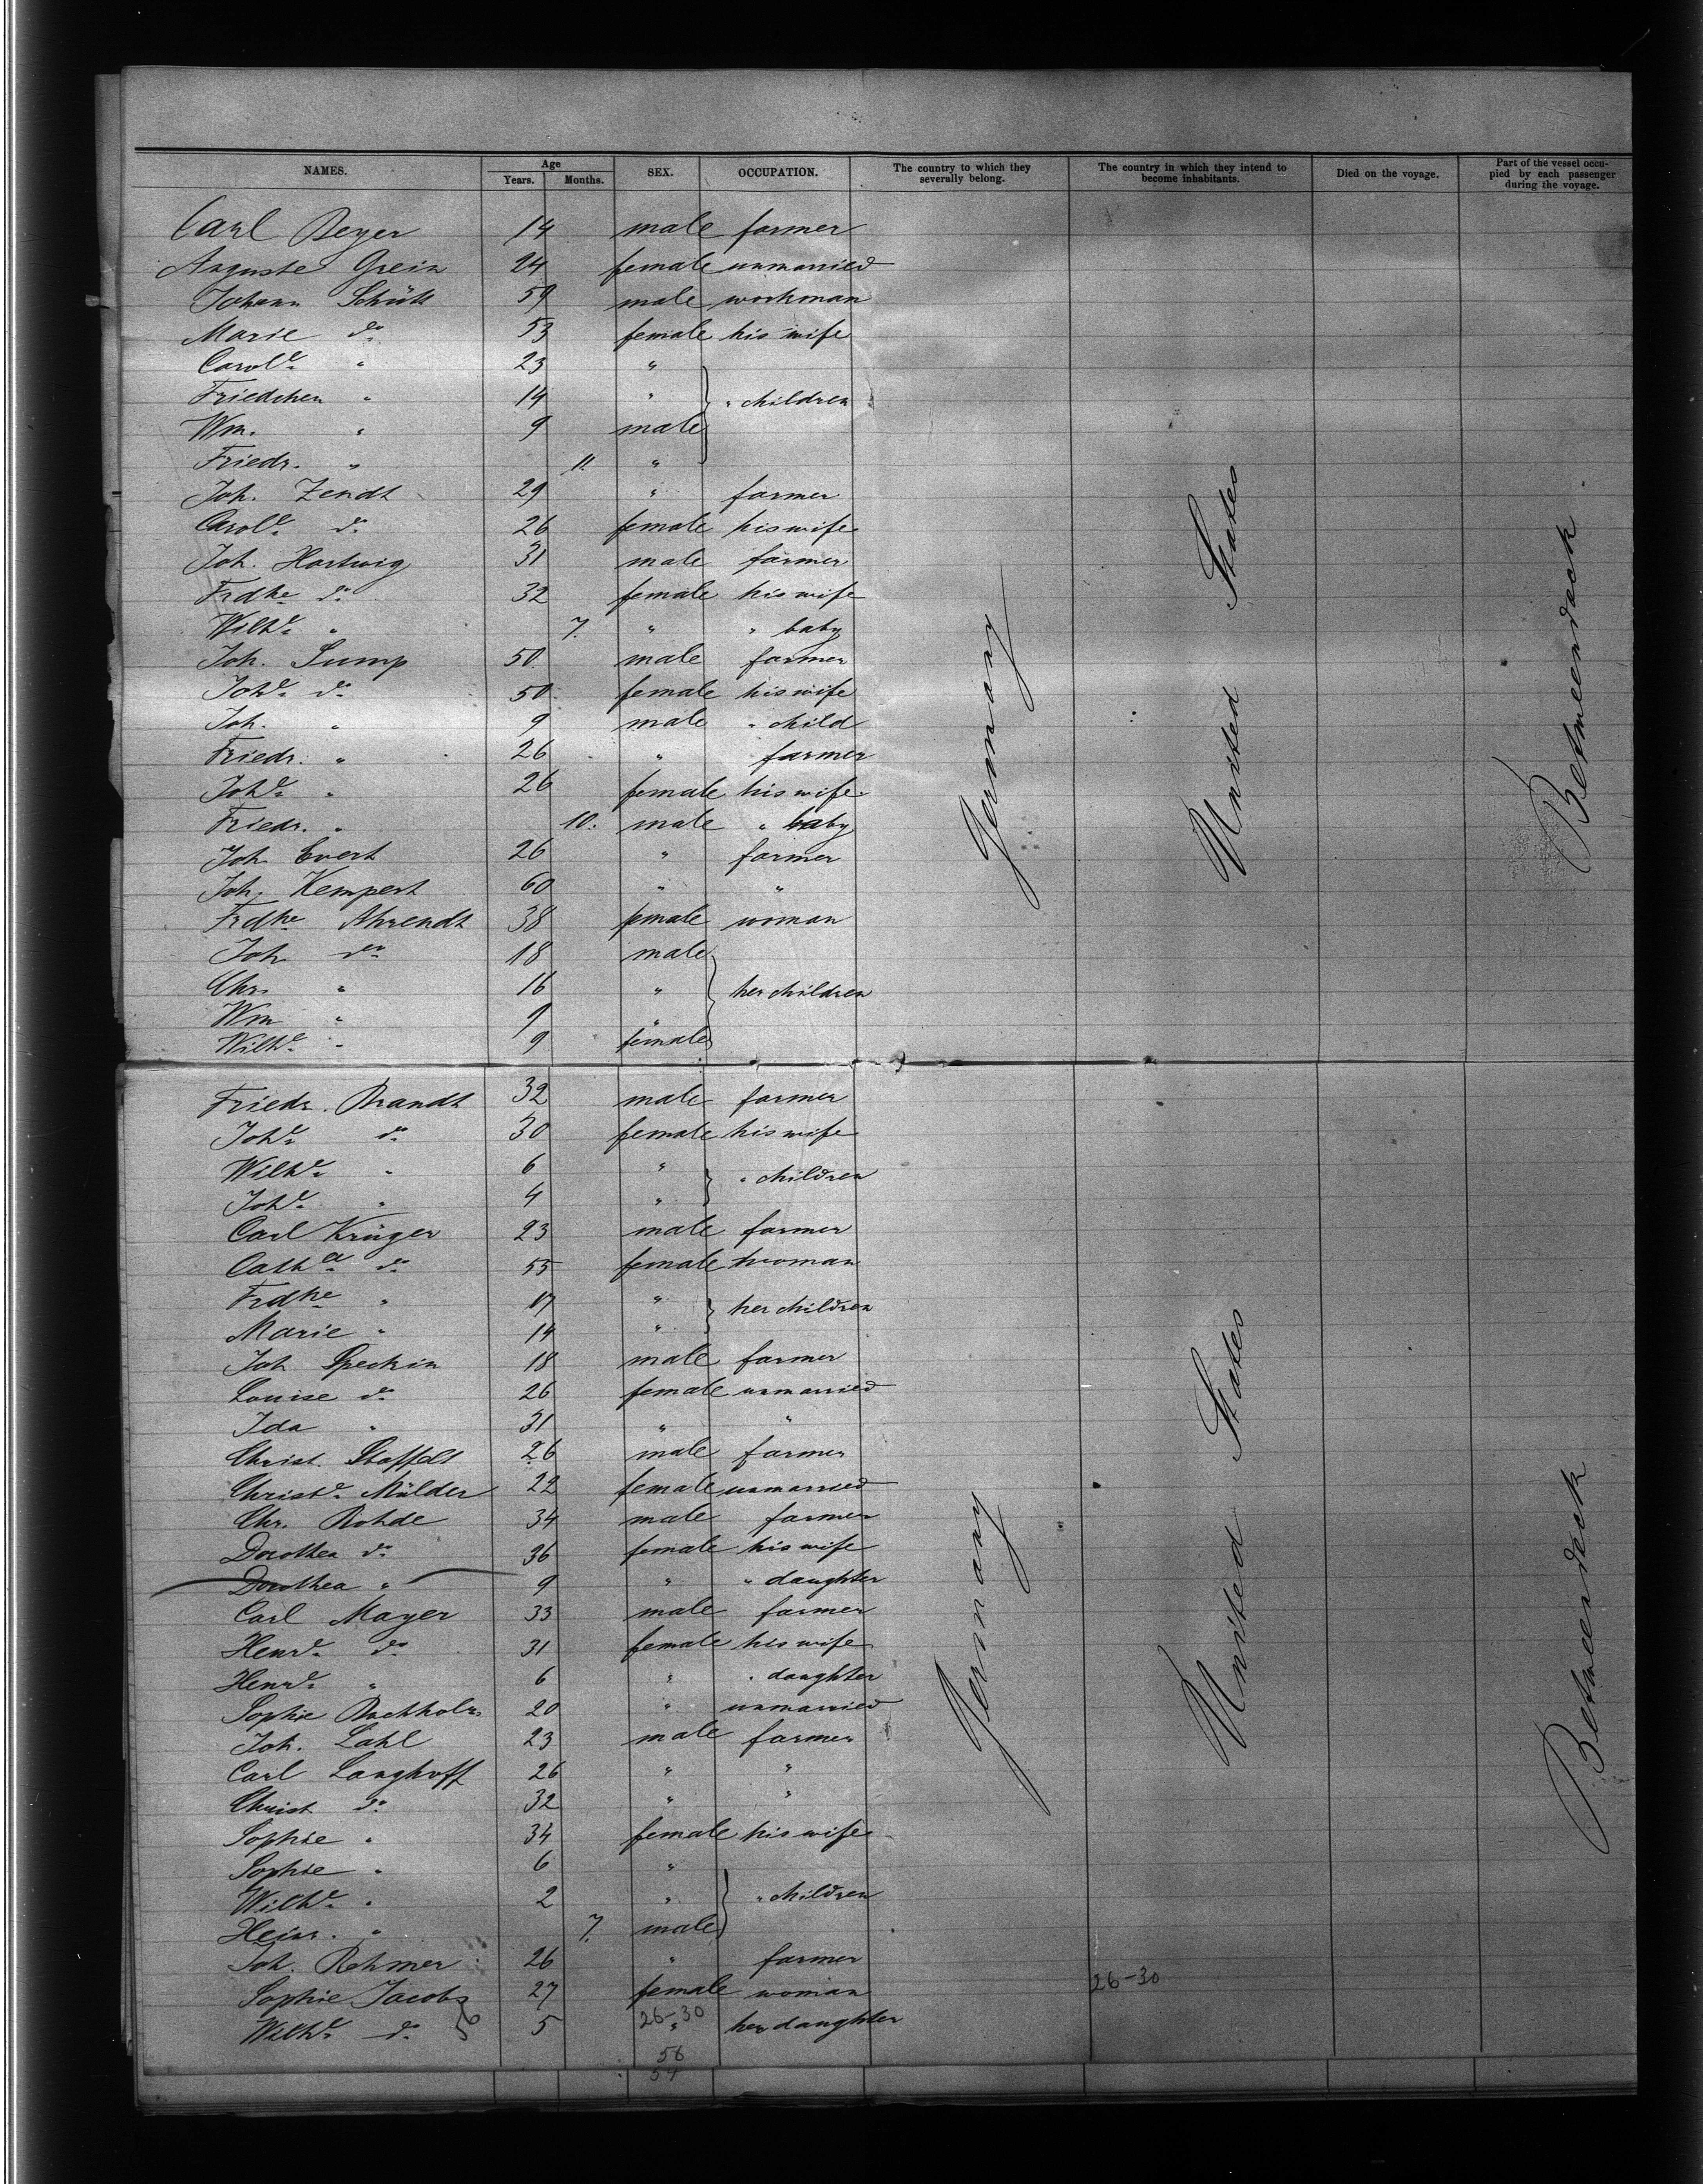 NAMES. Age Years. Months. SEX. OCCUPATION. The country to which they severally belong. The country in which they intend to become inhabitants. Died on the voyage. Part of the vessel occupied by each passenger during the voyage.
Carl Beyer 14 male farmer
Auguste Grein 24 female unmarried
Johann Schütt 59 male workman
Marie do 53 female his wife
Carole " 23 "
Friedchen " 14 " " children
Wm. " 9 male
Friedr. " 11. "
Joh. Zendt 29 " farmer
Carole do 26 female his wife
Joh. Hartwig 31 male farmer
Frdke do 32 female his wife
Wilhe " 7. " " baby
Joh. Sump 50 male farmer
Johe do 50 female his wife
Joh. " 9 male " child
Friedr. " 26 " farmer
Johe " 26 female his wife
Friedr. " 10. male " baby
Joh Evert 26 " farmer
Joh. Kempert 60 " "
Frdke Ahrendt 38 female woman
Joh do 18 male
Chr. " 16 " her children
Wm " 9 "
Wilhe " 9 female
Germany
United States
Betweendeck
Friedr. Brandt 32 male farmer
Johe do 30 female his wife
Wilhe " 6 " " children
Johe " 4 "
Carl Krüger 23 male farmer
Catha do 55 female woman
Frdke " 17 " her children
Marie " 14 "
Joh Speckin 18 male farmer
Louise do 26 female unmarried
Ida " 31 " "
Christ. Staffelt 26 male farmer
Christe Mülder 22 female unmarried
Chr. Rohde 34 male farmer
Dorothea do 36 female his wife
Dorothea " 9 " " daughter
Carl Mayer 33 male farmer
Henre do 31 female his wife
Henre " 6 " " daughter
Sophie Buchholz 20 " unmarried
Joh. Lahl 23 male farmer
Carl Langhoff 26 " "
Christ do 32 " "
Sophie " 34 female his wife
Sophie " 6 "
Wilhe " 2 " " children
Heinr. " 7. male
Joh. Rehmer 26 " farmer
Sophie Jacobs 27 female woman 26-30
Wilhe do 56 5 26-30 " her daughter
56
54
Germany
United States
Betweendeck